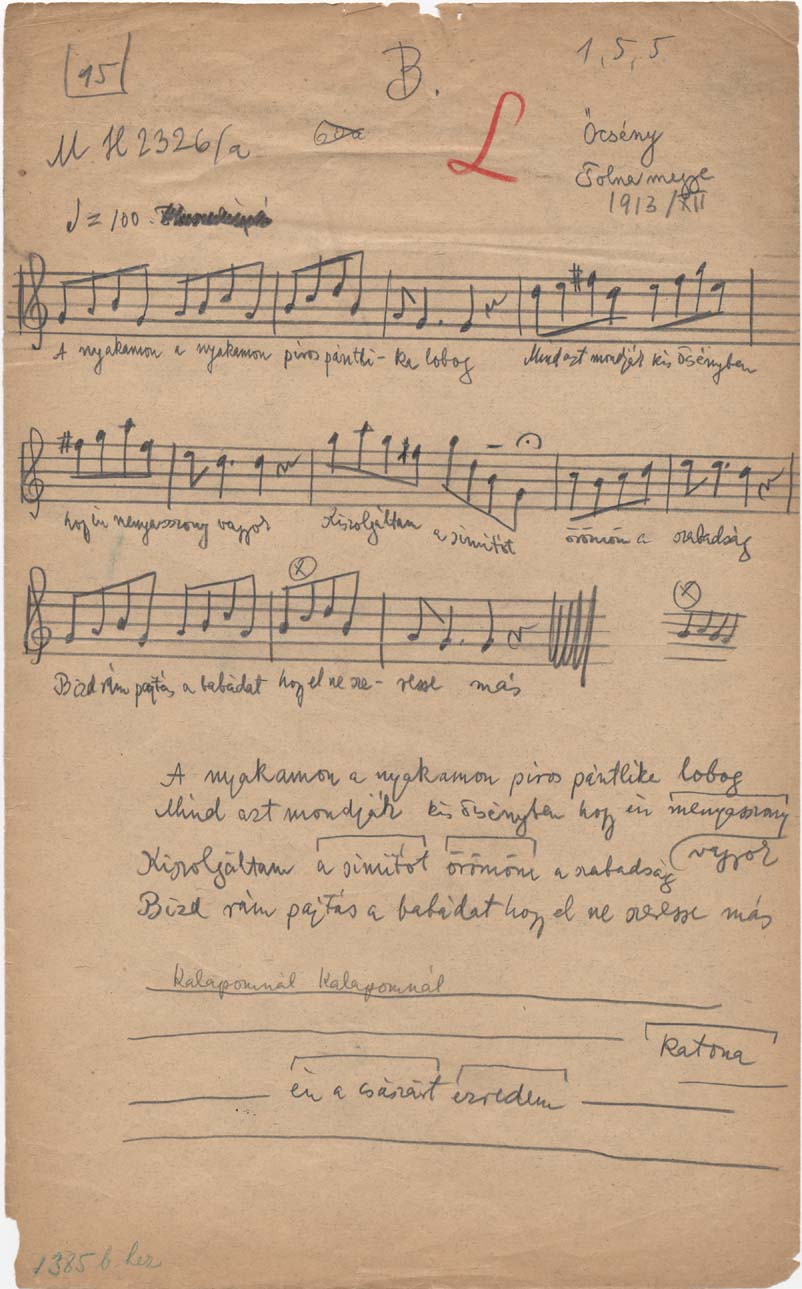 15
B.
1, 5, 5
L
M H 2326/a
Őcsény
Tolna megye
1913/XII
♩ = 100.
A nyakamon a nyakamon piros pántli-ka lobog Mind azt mondják kis Ősényben
hogy én menyasszony vagyok Kiszolgáltam a simitót örömöm a szabadság
X
X
Bizd rám pajtás a babádat hogy el ne sze-resse más
A nyakamon a nyakamon piros pántlika lobog
Mind azt mondják kis Ősényben hogy én menyasszony
vagyok
Kiszolgáltam a simitót örömöm a szabadság
Bizd rám pajtás a babádat hogy el ne szeresse más
Kalapomnál Kalapomnál
Katona
én a császárt ezredem
1385 b